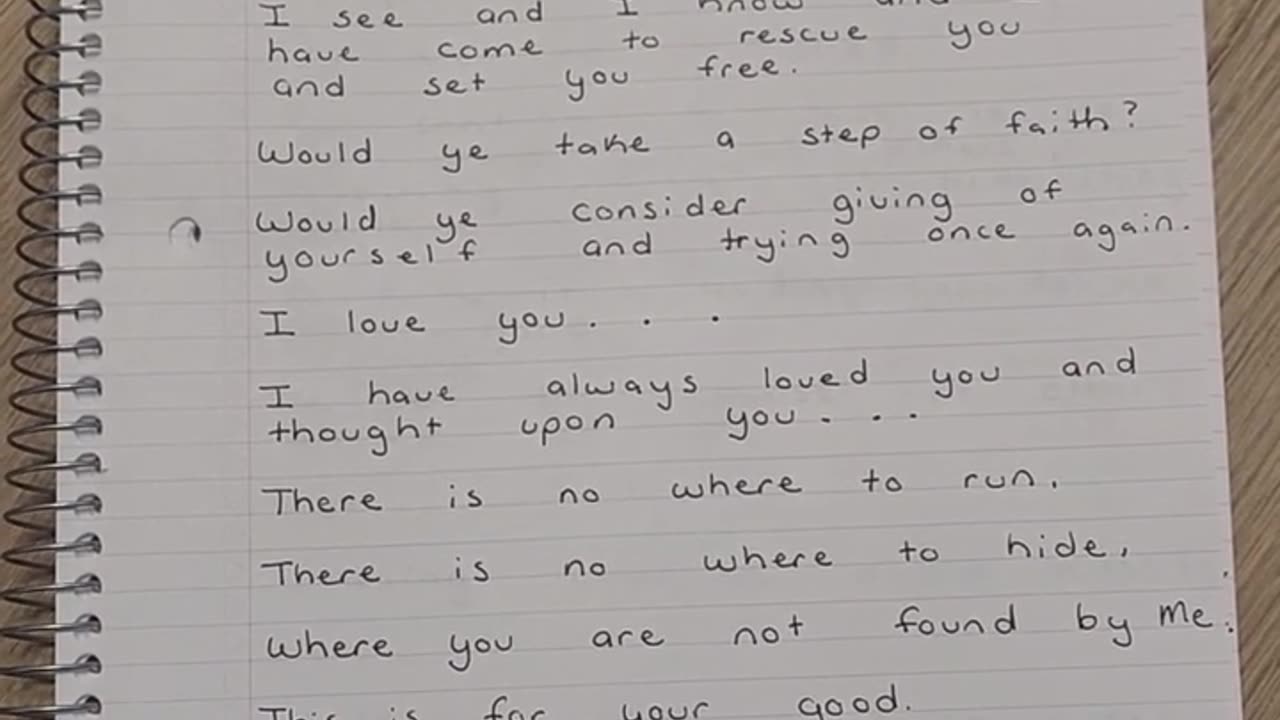 I see and I know and
have come to rescue you
and set you free.
Would ye take a step of faith?
Would ye consider giving of
yourself and trying once again.
I love you. . .
I have always loved you and
thought upon you. . .
There is no where to run.
There is no where to hide,
where you are not found by Me.
This is for your good.